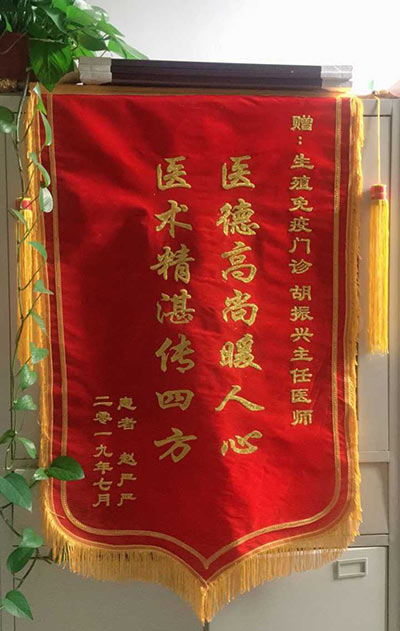 赠：生殖免疫门诊 胡振兴主任医师
医德高尚暖人心
医术精湛传四方
患者 赵严严
二零一九年七月